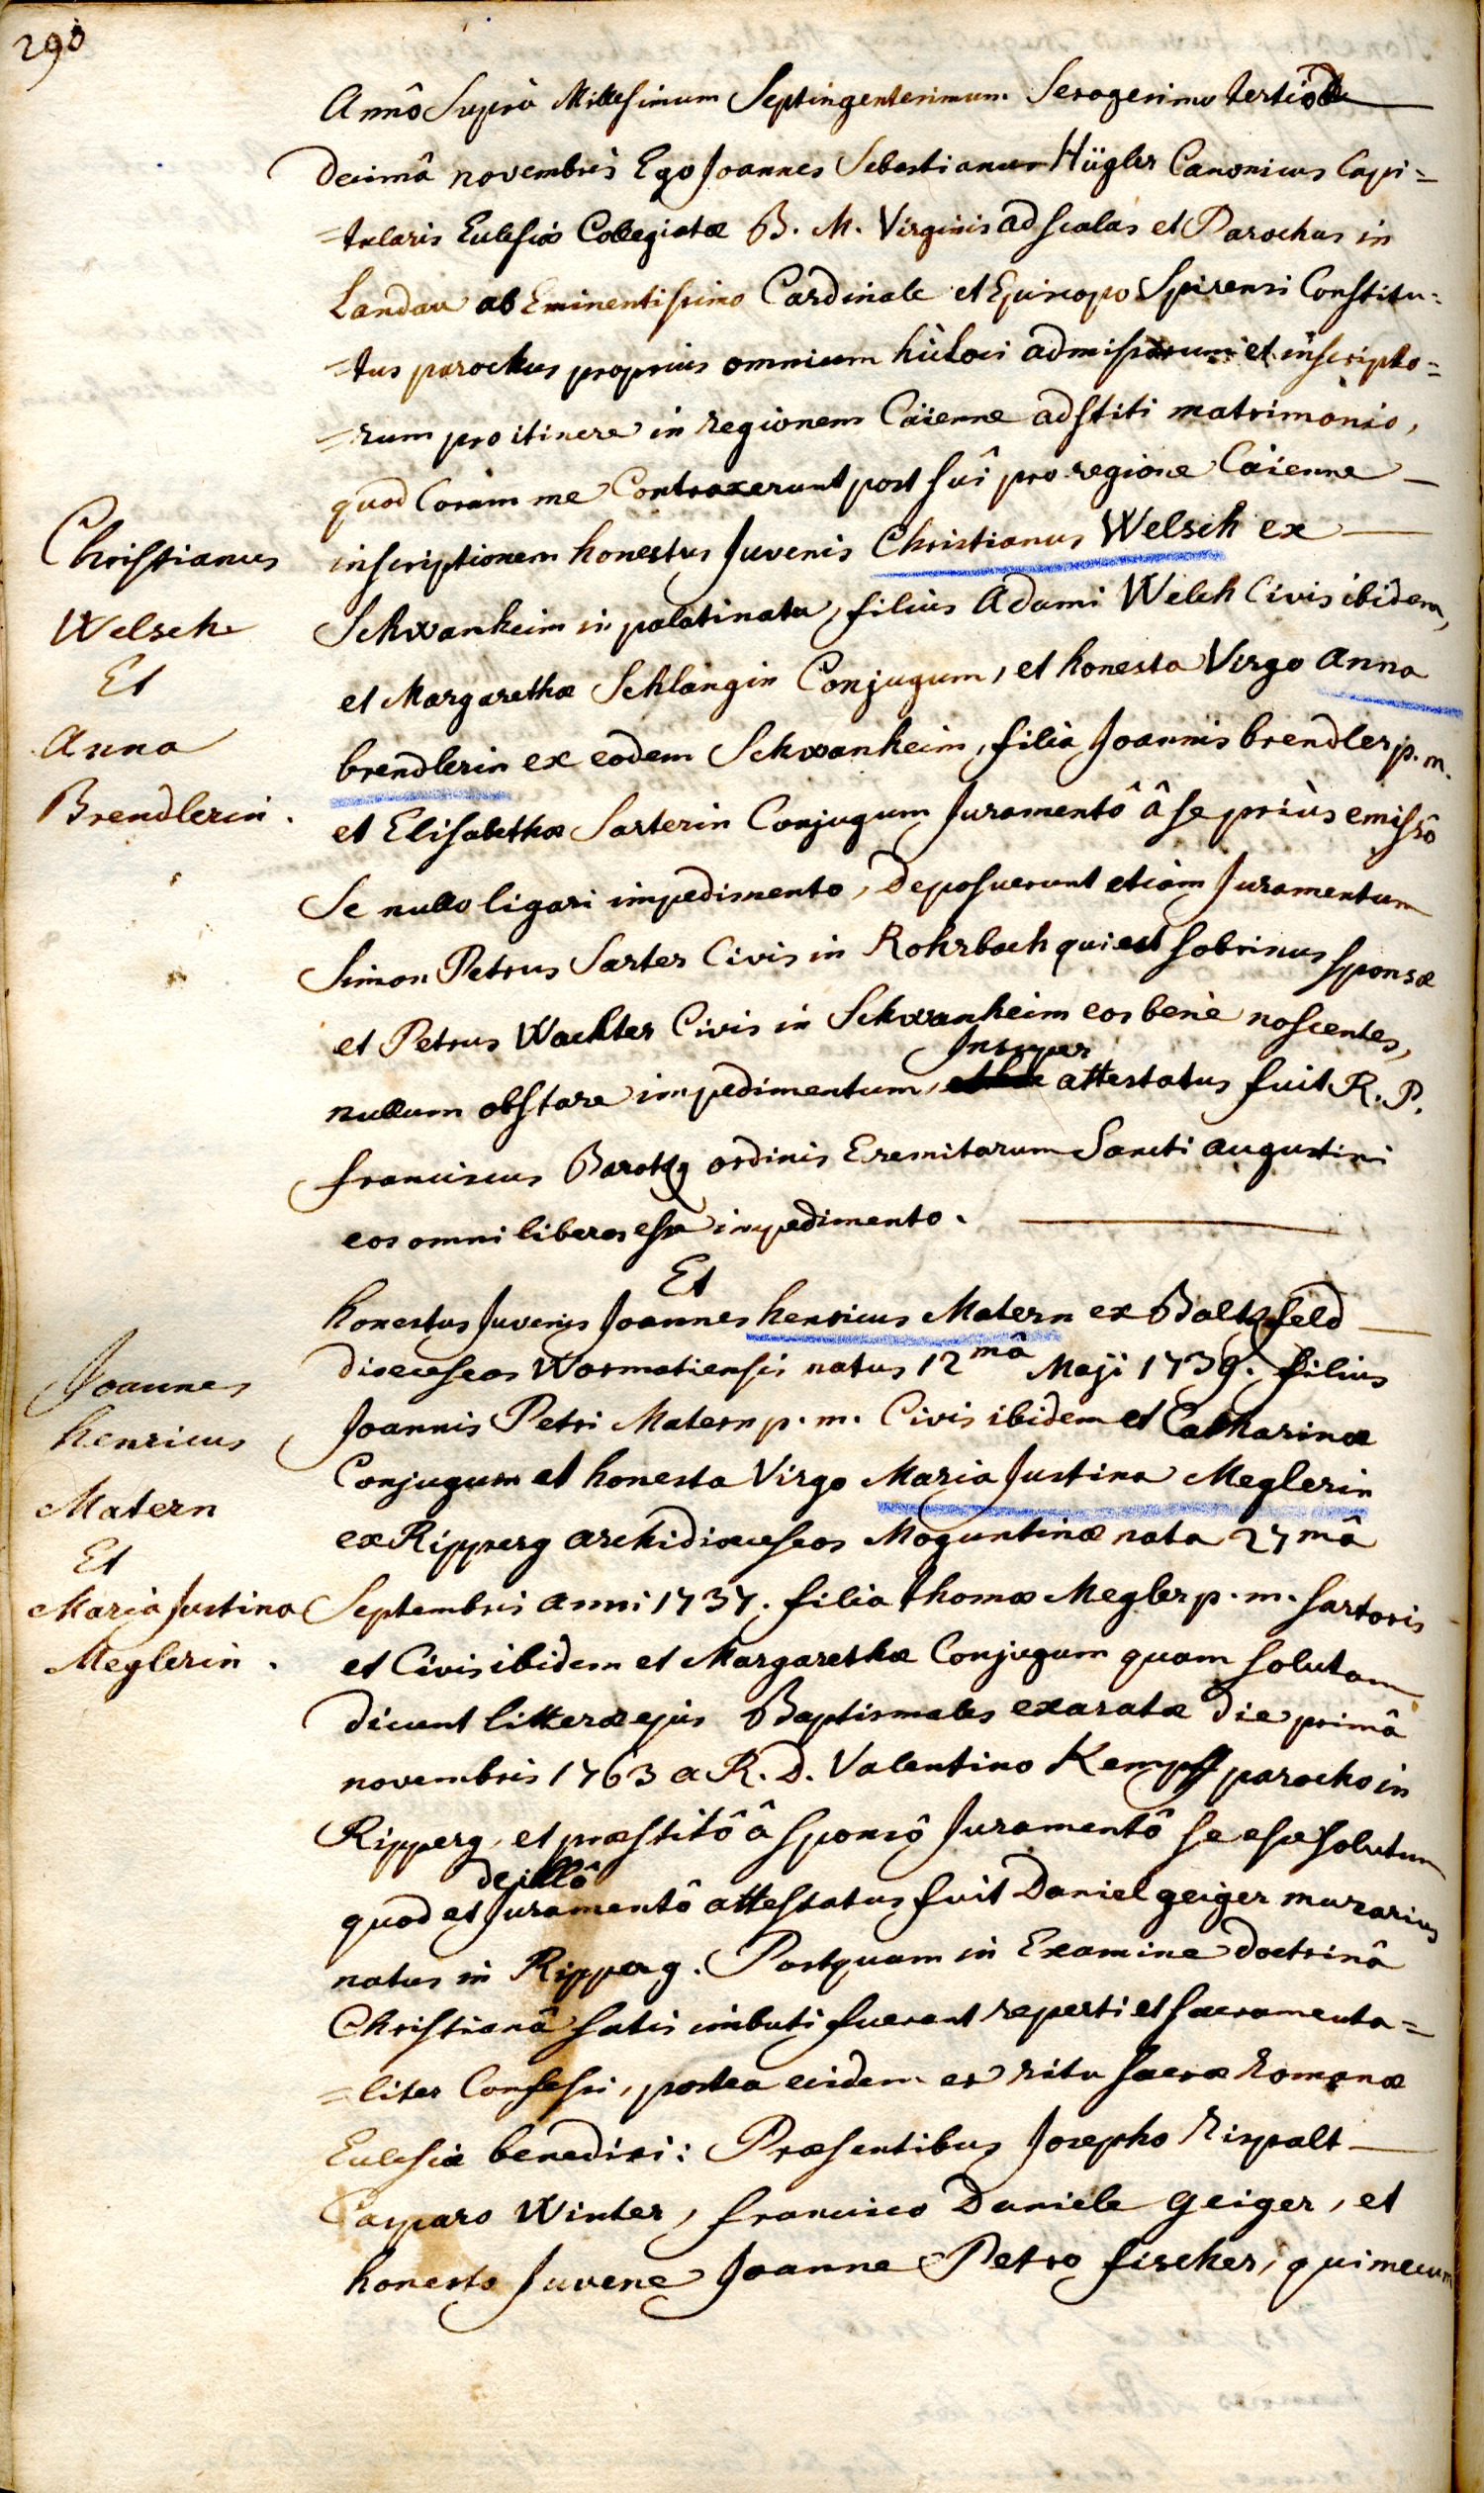 290
Annô Suprà Millesimum Septingentesimum Sexagesimo tertio
Decimâ novembris Ego Joannes Sebastianus Hügler Canonicus Capi=
=tularis Eclesiæ Collegiatæ B. M. Virginis ad scalas et Parochus in
Landau ab Eminentissimo Cardinale et Episcopo Spirensi Constitu=
=tus parochus proprius omnium hic loci admissorum et inscripto=
=rum pro itinere in regionem Caienne adstiti matrimonio,
quod Coram me Contraxerunt post suî pro regione Caienne
Christianus
Welsch
Et
Anna
Brendlerin.
inscriptionem honestus Juvenis Christianus Welsch ex
Schwanheim in palatinatu, filius Adami Welch Civis ibidem,
et Margarethæ Schlangin Conjugum, et honesta Virgo Anna
brendlerin ex eodem Schwanheim, filia Joannis brendler p. m.
et Elisabethæ Sarterin Conjugum Juramentô â se priùs emissô
Se nullo ligari impedimento, Deposuerunt etiam Juramentum
Simon Petrus Sarter Civis in Rohrbach qui est sobrinus sponsæ
et Petrus Wachter Civis in Schwanheim eos benè noscentes,
nullum obstare impedimentum, Insuper attestatus fuit R. P.
franciscus ordinis Eremitarum Sancti augustini
eos omni liberos esse impedimento.
Et
Joannes
henricus
Matern
Et
Maria Justina
Meglerin.
honestus Juvenis Joannes henricus Matern ex Baltzfeld
dioeceseos Wormatiensis natus 12mâ Maji 1739. filius
Joannis Petri Matern p. m. Civis ibidem et Catharinæ
Conjugum et honesta Virgo Maria Justina Meglerin
ex Ripperg archidioeceseos Moguntinæ nata 27mâ
Septembris anni 1737. filia thomæ Megler p. m. sartoris
et Civis ibidem et Margarethæ Conjugum quam solutam
dicunt litteræ ejus Baptismales exaratæ die primâ
novembris 1763 a R. D. Valentino Kempff parocho in
Ripperg, et præstitô â sponsô Juramentô se esse solutum
quod et de illô Juramentô attestatus fuit Daniel geiger murarius
natus in Ripperg. Postquam in Examine doctrinâ
Christianâ satis imbuti fuerant reperti et sacramenta=
=liter Confessi, postea eidem ex ritu sacræ romanæ
Eclesiæ benedixi: Præsentibus Josepho Rispalt
Casparo Winter, francisco Daniele geiger, et
honesto Juvene Joanne Petro fischer, qui mecum